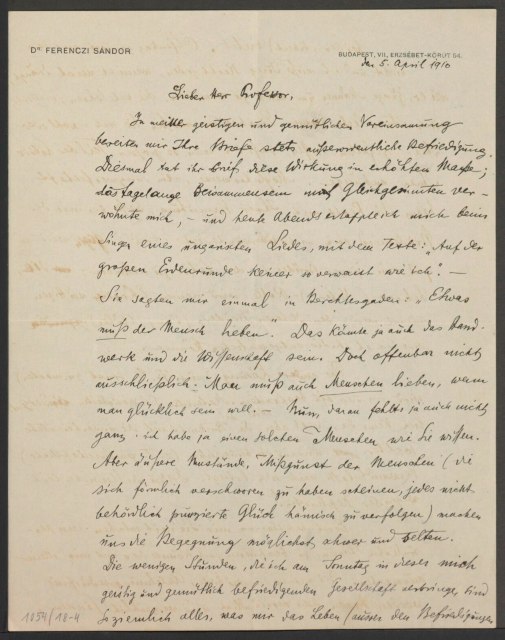 Dr FERENCZI SÁNDOR
BUDAPEST, VII, ERZSÉBET-KÖRÚT 54.
den 5. April 1910
Lieber Herr Professor,
In meiner geistigen und gemütlichen Vereinsamung
bereiten mir Ihre Briefe stets außerordentliche Befriedigung.
Diesmal tat ihr Brief diese Wirkung in erhöhtem Maße;
das tagelange Beisammensein mit Gleichgesinnten ver-
wöhnte mich, – und heute Abends ertappte ich mich beim
Singen eines ungarischen Liedes, mit dem Texte: „Auf der
großen Erdenrunde keiner so verwaist wie ich". –
Sie sagten mir einmal in Berchtesgaden: „Etwas
muß der Mensch lieben". Das könnte ja auch das Hand-
werk und die Wissenschaft sein. Doch offenbar nicht
ausschließlich. Man muß auch Menschen lieben, wenn
man glücklich sein will. – Nun, daran fehlts ja auch nicht
ganz – ich habe ja einen solchen Menschen wie Sie wissen.
Aber äußere Umstände, Mißgunst der Menschen (die
sich förmlich verschworen zu haben scheinen, jedes nicht
behördlich punzierte Glück hämisch zu verfolgen) machen
uns die Begegnung möglichst schwer und selten.
Die wenigen Stunden, die ich am Sonntag in dieser mich
geistig und gemütlich befriedigenden Gesellschaft verbringe, sind
so ziemlich alles, was mir das Leben (ausser den Befriedigungen
1054/18-4